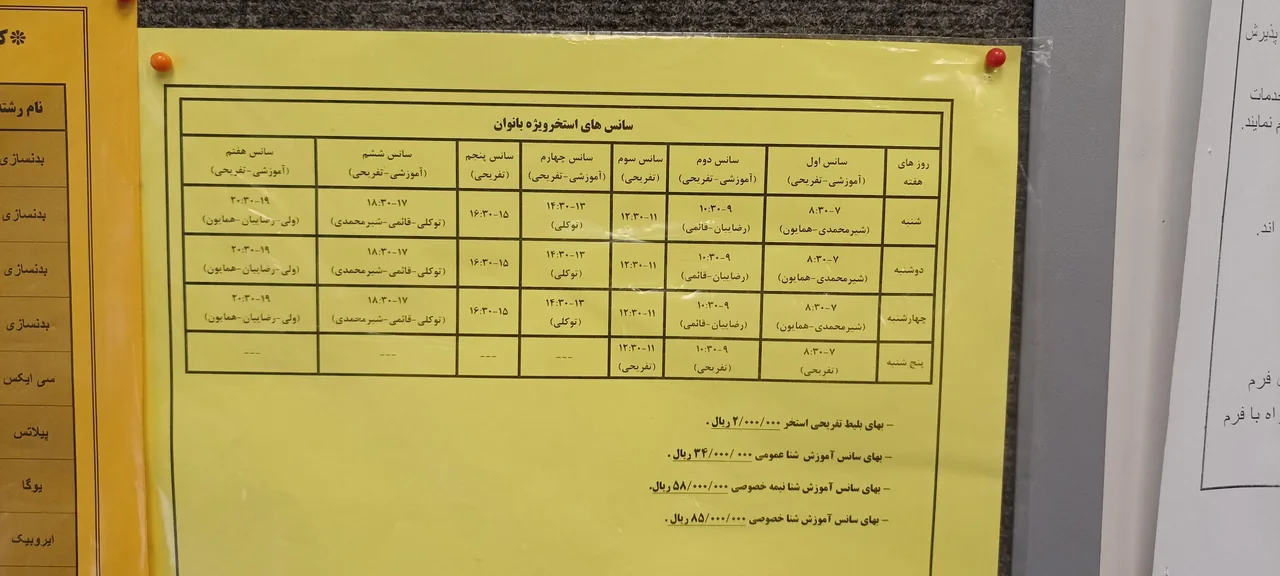 سانس های استخر ویژه بانوان
روز های هفته | سانس اول (آموزشی-تفریحی) | سانس دوم (آموزشی-تفریحی) | سانس سوم (تفریحی) | سانس چهارم (آموزشی-تفریحی) | سانس پنجم (تفریحی) | سانس ششم (آموزشی-تفریحی) | سانس هفتم (آموزشی-تفریحی)
شنبه | ۷-۸:۳۰ (شیرمحمدی-همایون) | ۹-۱۰:۳۰ (رضاییان-قائمی) | ۱۱-۱۲:۳۰ | ۱۳-۱۴:۳۰ (توکلی) | ۱۵-۱۶:۳۰ | ۱۷-۱۸:۳۰ (توکلی-قائمی-شیرمحمدی) | ۱۹-۲۰:۳۰ (ولی-رضاییان-همایون)
دوشنبه | ۷-۸:۳۰ (شیرمحمدی-همایون) | ۹-۱۰:۳۰ (رضاییان-قائمی) | ۱۱-۱۲:۳۰ | ۱۳-۱۴:۳۰ (توکلی) | ۱۵-۱۶:۳۰ | ۱۷-۱۸:۳۰ (توکلی-قائمی-شیرمحمدی) | ۱۹-۲۰:۳۰ (ولی-رضاییان-همایون)
چهارشنبه | ۷-۸:۳۰ (شیرمحمدی-همایون) | ۹-۱۰:۳۰ (رضاییان-قائمی) | ۱۱-۱۲:۳۰ | ۱۳-۱۴:۳۰ (توکلی) | ۱۵-۱۶:۳۰ | ۱۷-۱۸:۳۰ (توکلی-قائمی-شیرمحمدی) | ۱۹-۲۰:۳۰ (ولی-رضاییان-همایون)
پنج شنبه | ۷-۸:۳۰ (تفریحی) | ۹-۱۰:۳۰ (تفریحی) | ۱۱-۱۲:۳۰ (تفریحی) | --- | --- | --- | ---
- بهای بلیط تفریحی استخر ۲/۰۰۰/۰۰۰ ریال .
- بهای سانس آموزش شنا عمومی ۳۴/۰۰۰/۰۰۰ ریال .
- بهای سانس آموزش شنا نیمه خصوصی ۵۸/۰۰۰/۰۰۰ ریال.
- بهای سانس آموزش شنا خصوصی ۸۵/۰۰۰/۰۰۰ ریال .
نام رشته
بدنسازی
بدنسازی
بدنسازی
بدنسازی
سی ایکس
پیلاتس
یوگا
ایروبیک
پذیرش
خدمات
نمایند.
اند.
فرم
راه با فرم